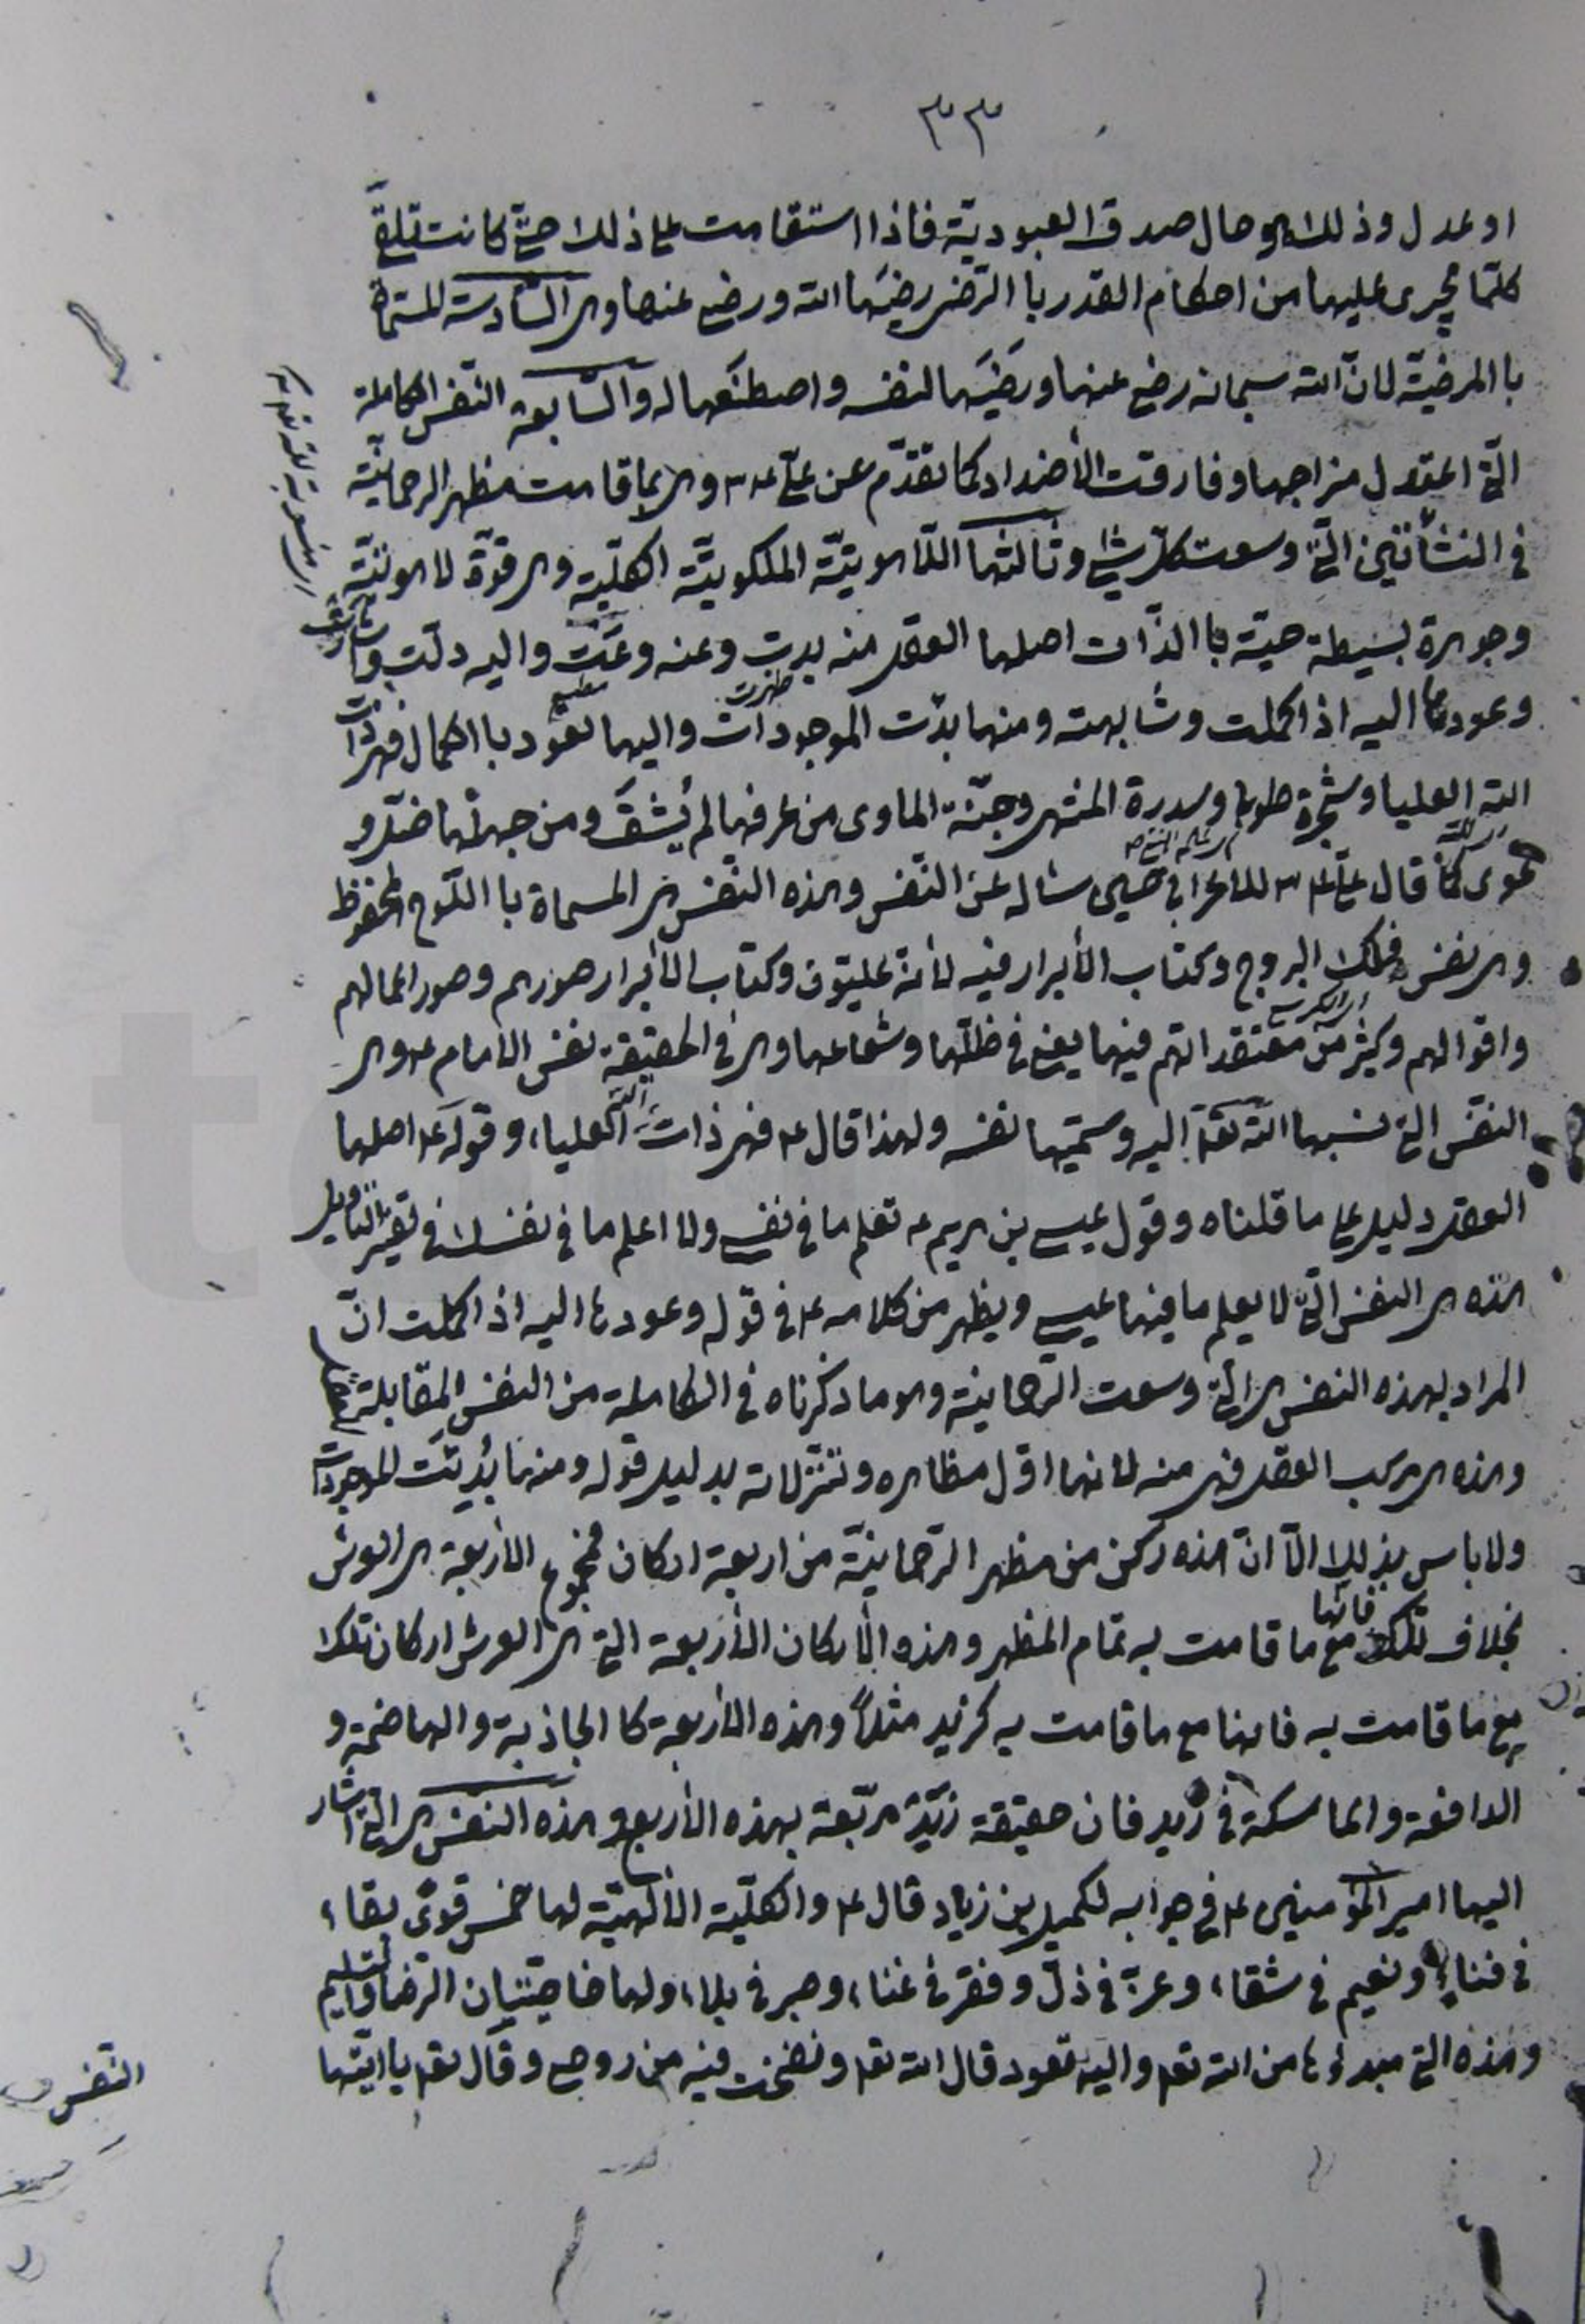 ٣٣
او عدل وذلك هو حال صدق العبودية فاذا استقامت على ذلك حتى كانت تتلقى
كلما يجرى عليها من احكام القدر با الرضى رضيها الله ورضى عنها وهى السادسة المسماة
با المرضية لان الله سبحانه رضى عنها ورضيها لنفسه واصطنعها له والسابعة النفس الكاملة
التى اعتدل مزاجها وفارقت الأضداد كما تقدم عن على ع م وهى بما قامت مظهر الرحمانية
فى النشأتين التى وسعت كل شئ وثالثها اللاهوتية الملكوتية الكلية وهى قوة لاهوتية
وجوهرة بسيطة حية با الذات اصلها العقل منه بدت وعنه وعت واليه دلت واشارت
وعودها اليه اذا كملت وشابهته ومنها بدئت الموجودات واليها تعود با الكمال فهى ذات
ظهرت
الله العليا وشجرة طوبى وسدرة المنتهى وجنة المأوى من عرفها لم يشق ومن جهلها ضل و
غوى كما قال على ع م للاعرابى حين سئاله عن النفس وهذه النفس هى المسماة با اللوح المحفوظ
وهى نفس فلك البروج وكتاب الأبرار فيه لأنه عليون وكتاب الأبرار صورهم وصور اعمالهم
واقوالهم وكثير من معتقداتهم فيها يعنى فى ظلها وشعاعها وهى فى الحقيقة نفس الامام ع وهى
النفس التى نسبها الله تعا اليه وسميها نفسه ولهذا قال ع فهى ذات الله العليا، وقوله ع اصلها
العقل دليل على ما قلناه وقول عيسى بن مريم ع تعلم ما فى نفسى ولا اعلم ما فى نفسك فى تفسير التاويل
هذه هى النفس التى لا يعلم ما فيها عيسى ويظهر من كلامه ع فى قوله وعودها اليه اذا كملت ان
المراد بهذه النفس هى التى وسعت الرحمانية وهو ما ذكرناه فى الكاملة من النفس المقابلة
وهذه هى مركب العقل فهى منه لانها اول مظاهره وتنزلاته بدليل قوله ومنها بدئت الموجودات
ولا باس بذلك الا ان هذه ركن من مظهر الرحمانية من اربعة اركان مجموع الاربعة هى العرش
بخلاف تلك فانها مع ما قامت به تمام المظهر وهذه الأركان الأربعة التى هى العرش اركان تلك
مع ما قامت به فانها مع ما قامت به كزيد مثلا وهذه الأربعة كا الجاذبة والهاضمة و
الدافعة والماسكة فى زيد فان حقيقة زيد مربعة بهذه الأربع وهذه النفس هى التى اشار
اليها امير المؤمنين ع فى جوابه لكميل بن زياد قال ع والكلية الالهية لها خمس قوى بقاء
فى فناء ونعيم فى شقاء، وعز فى ذل وفقر فى غناء، وصبر فى بلاء، ولها خاصيتان الرضا والتسليم
وهذه التى مبدؤها من الله تعا واليه تعود قال الله تعا ونفخت فيه من روحى وقال تعا يا ايتها
النفس